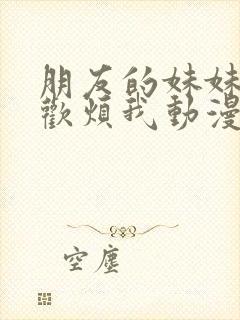 朋友的妹妹
歡煩我動漫
空塵